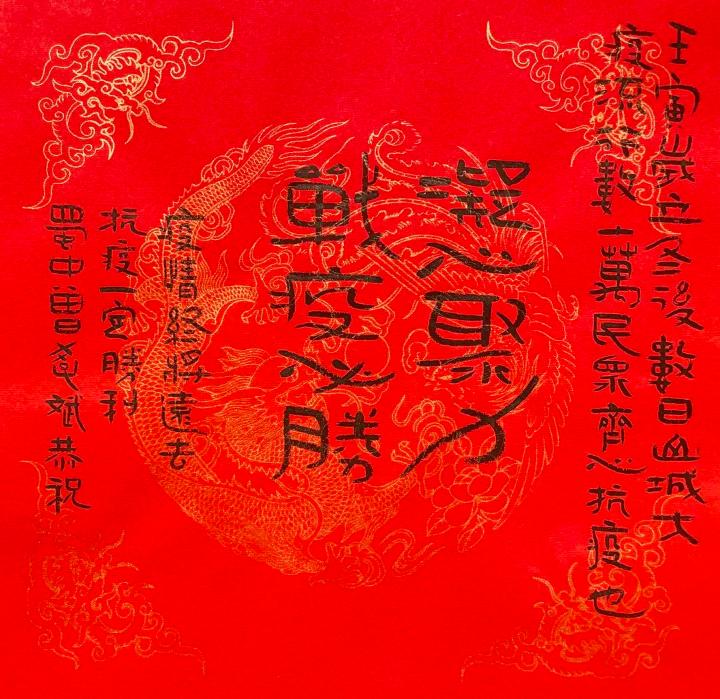 壬寅歲立冬後數日山城大
疫流行數十萬民眾齊心抗疫也
凝心聚力
戰疫必勝
疫情終將遠去
抗疫一定勝利
蜀中曾斌恭祝